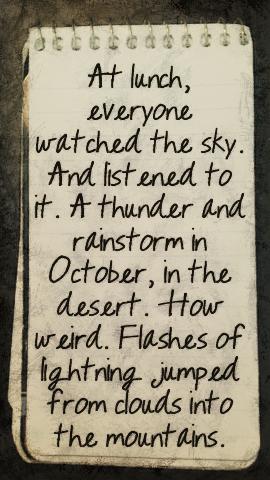 At lunch,
everyone
watched the sky.
And listened to
it. A thunder and
rainstorm in
October, in the
desert. How
weird. Flashes of
lightning jumped
from clouds into
the mountains.